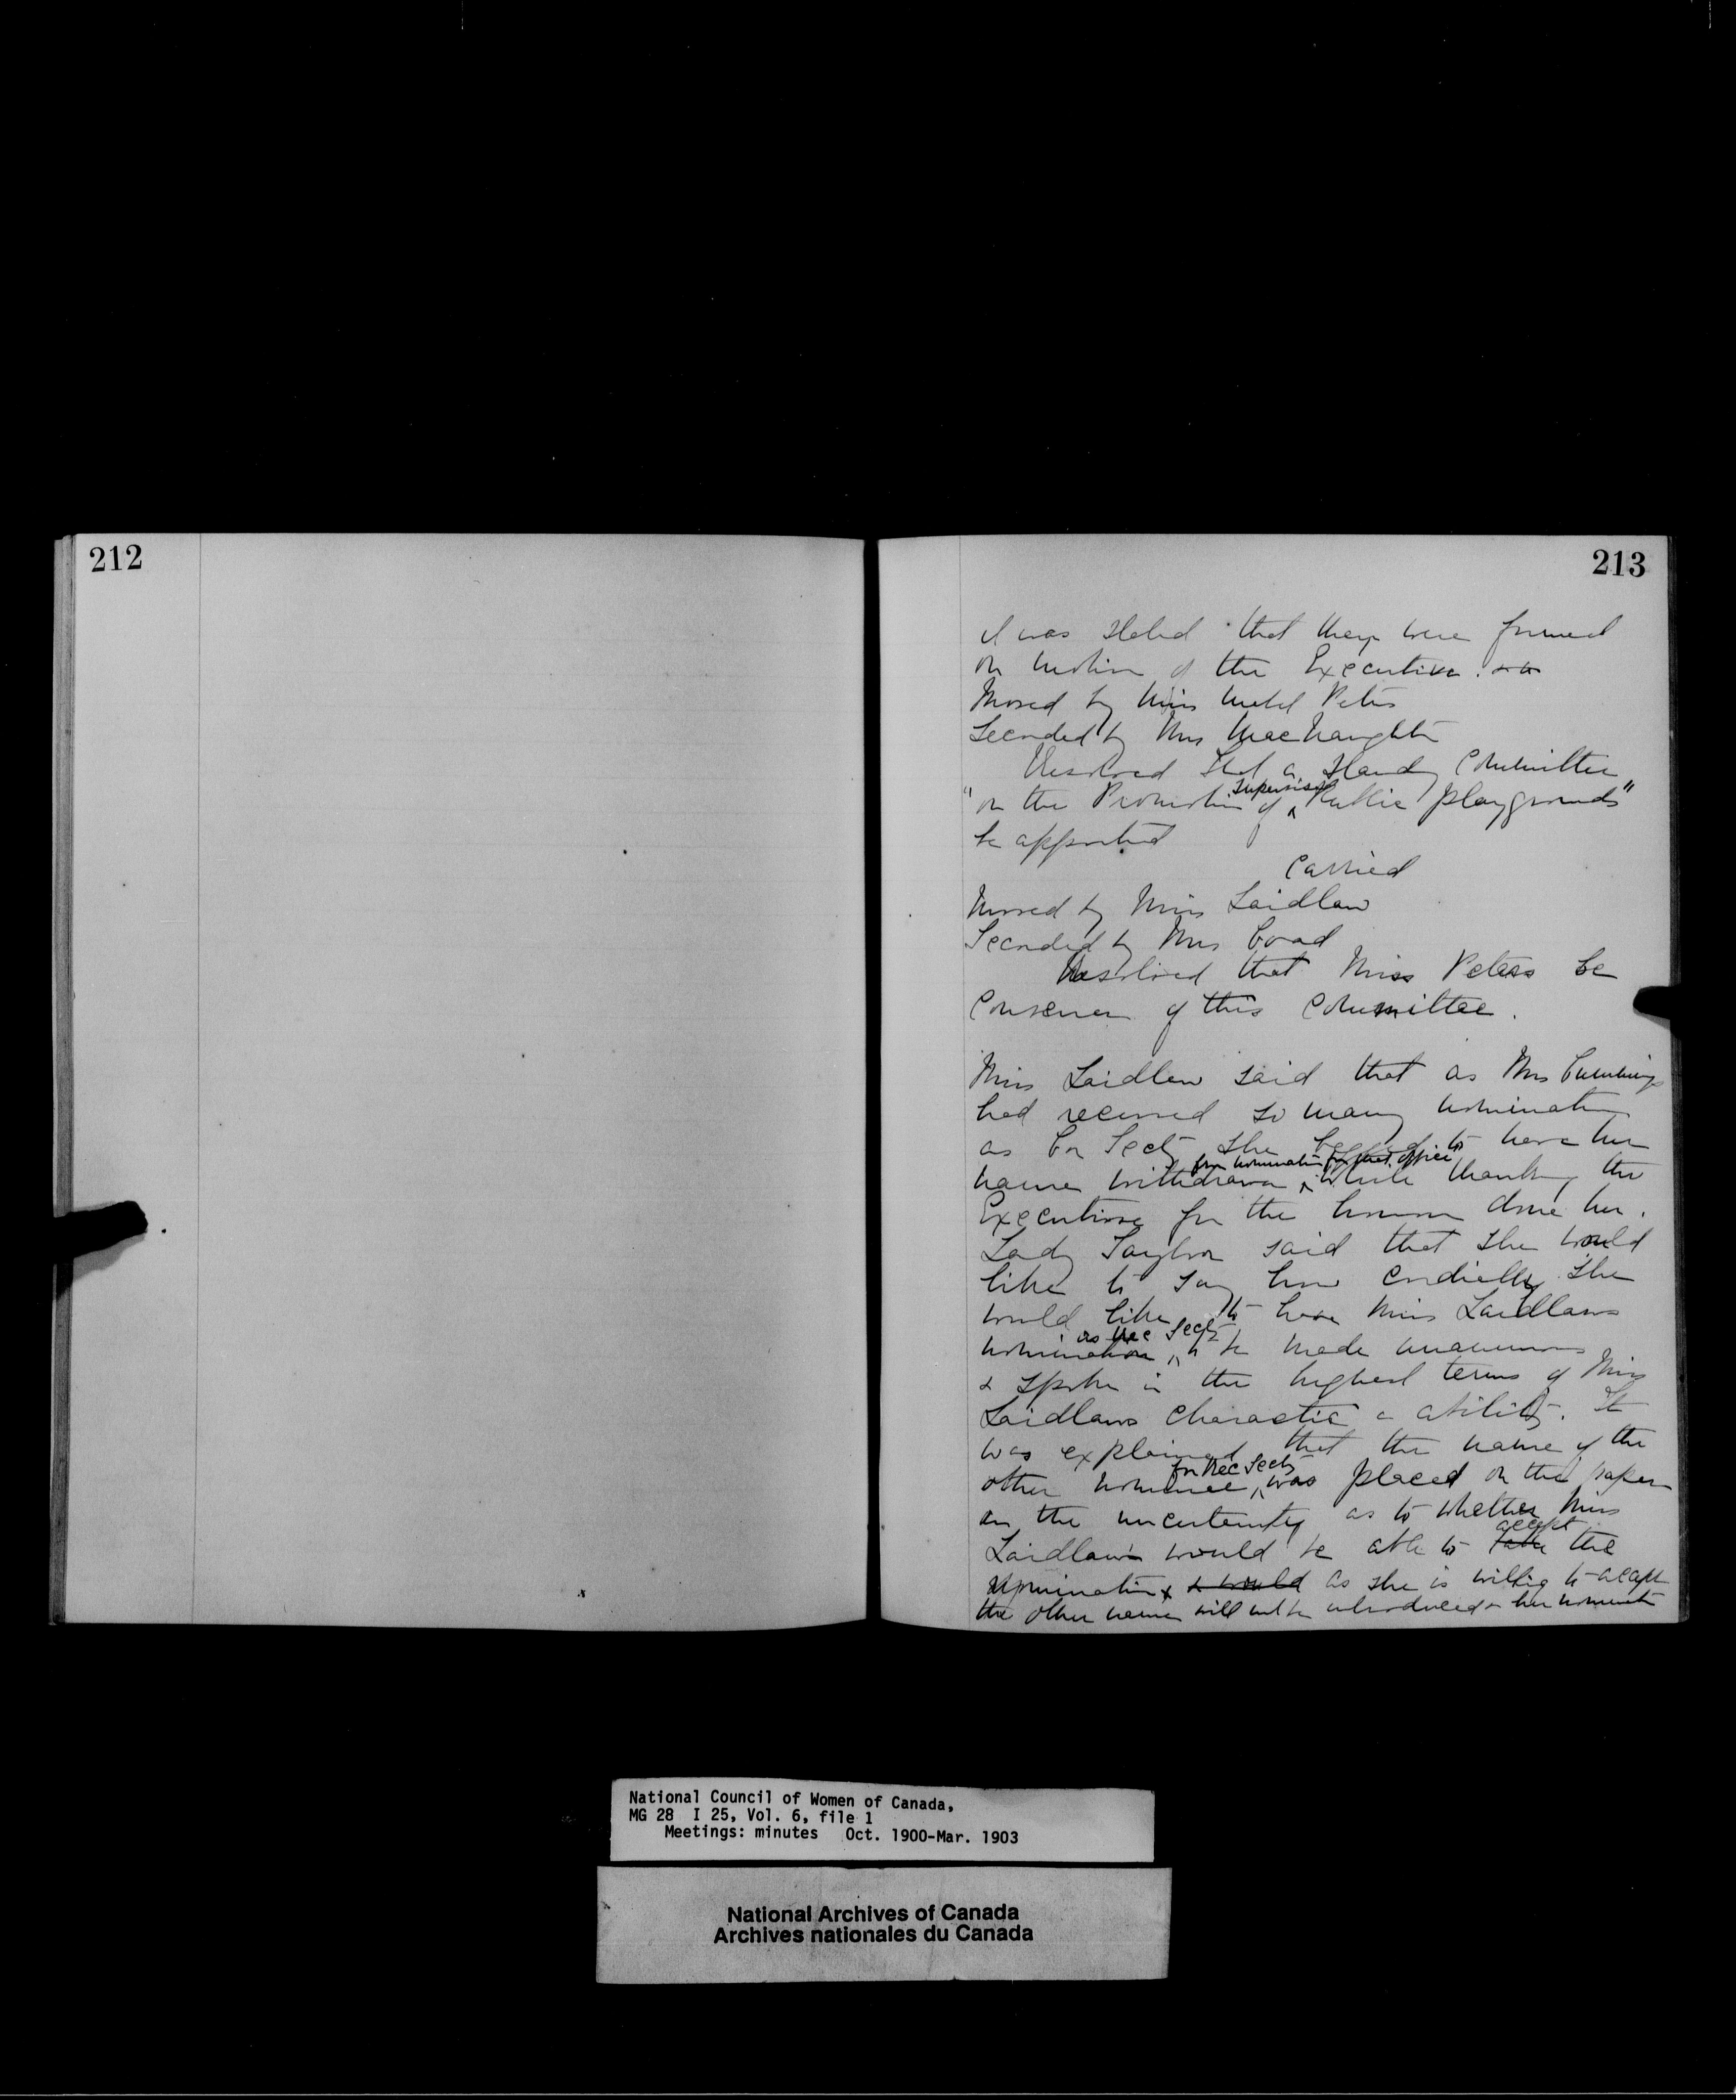 212
213
It was stated that they were formed
on motion of the Executive.
Moved by Miss Mabel Peters
Seconded by Mrs MacNaughton
Resolved that a Standing Committee
"on the Promotion of supervised Public playgrounds"
be appointed
Carried
Moved by Miss Laidlaw
Seconded by Mrs Coad
Resolved that Miss Peters be
Convener of this Committee.
Miss Laidlaw said that as Mrs Cummings
had received so many nominations
as Cor Secty she begged to have her
name withdrawn from nomination for that office while thanking the
Executive for the honour done her.
Lady Taylor said that she would
like to say how cordially she
would like to have Miss Laidlaws
nomination as Rec Secty to be made unanimous
& spoke in the highest terms of Miss
Laidlaws character & ability. It
was explained that the name of the
other nominee for Rec Secty was placed on the paper
on the uncertainty as to whether Miss
Laidlaw would be able to take accept the
nomination & would as she is willing to accept
the other name will not be introduced & her nominatn
National Council of Women of Canada,
MG 28 I 25, Vol. 6, file 1
Meetings: minutes Oct. 1900-Mar. 1903
National Archives of Canada
Archives nationales du Canada